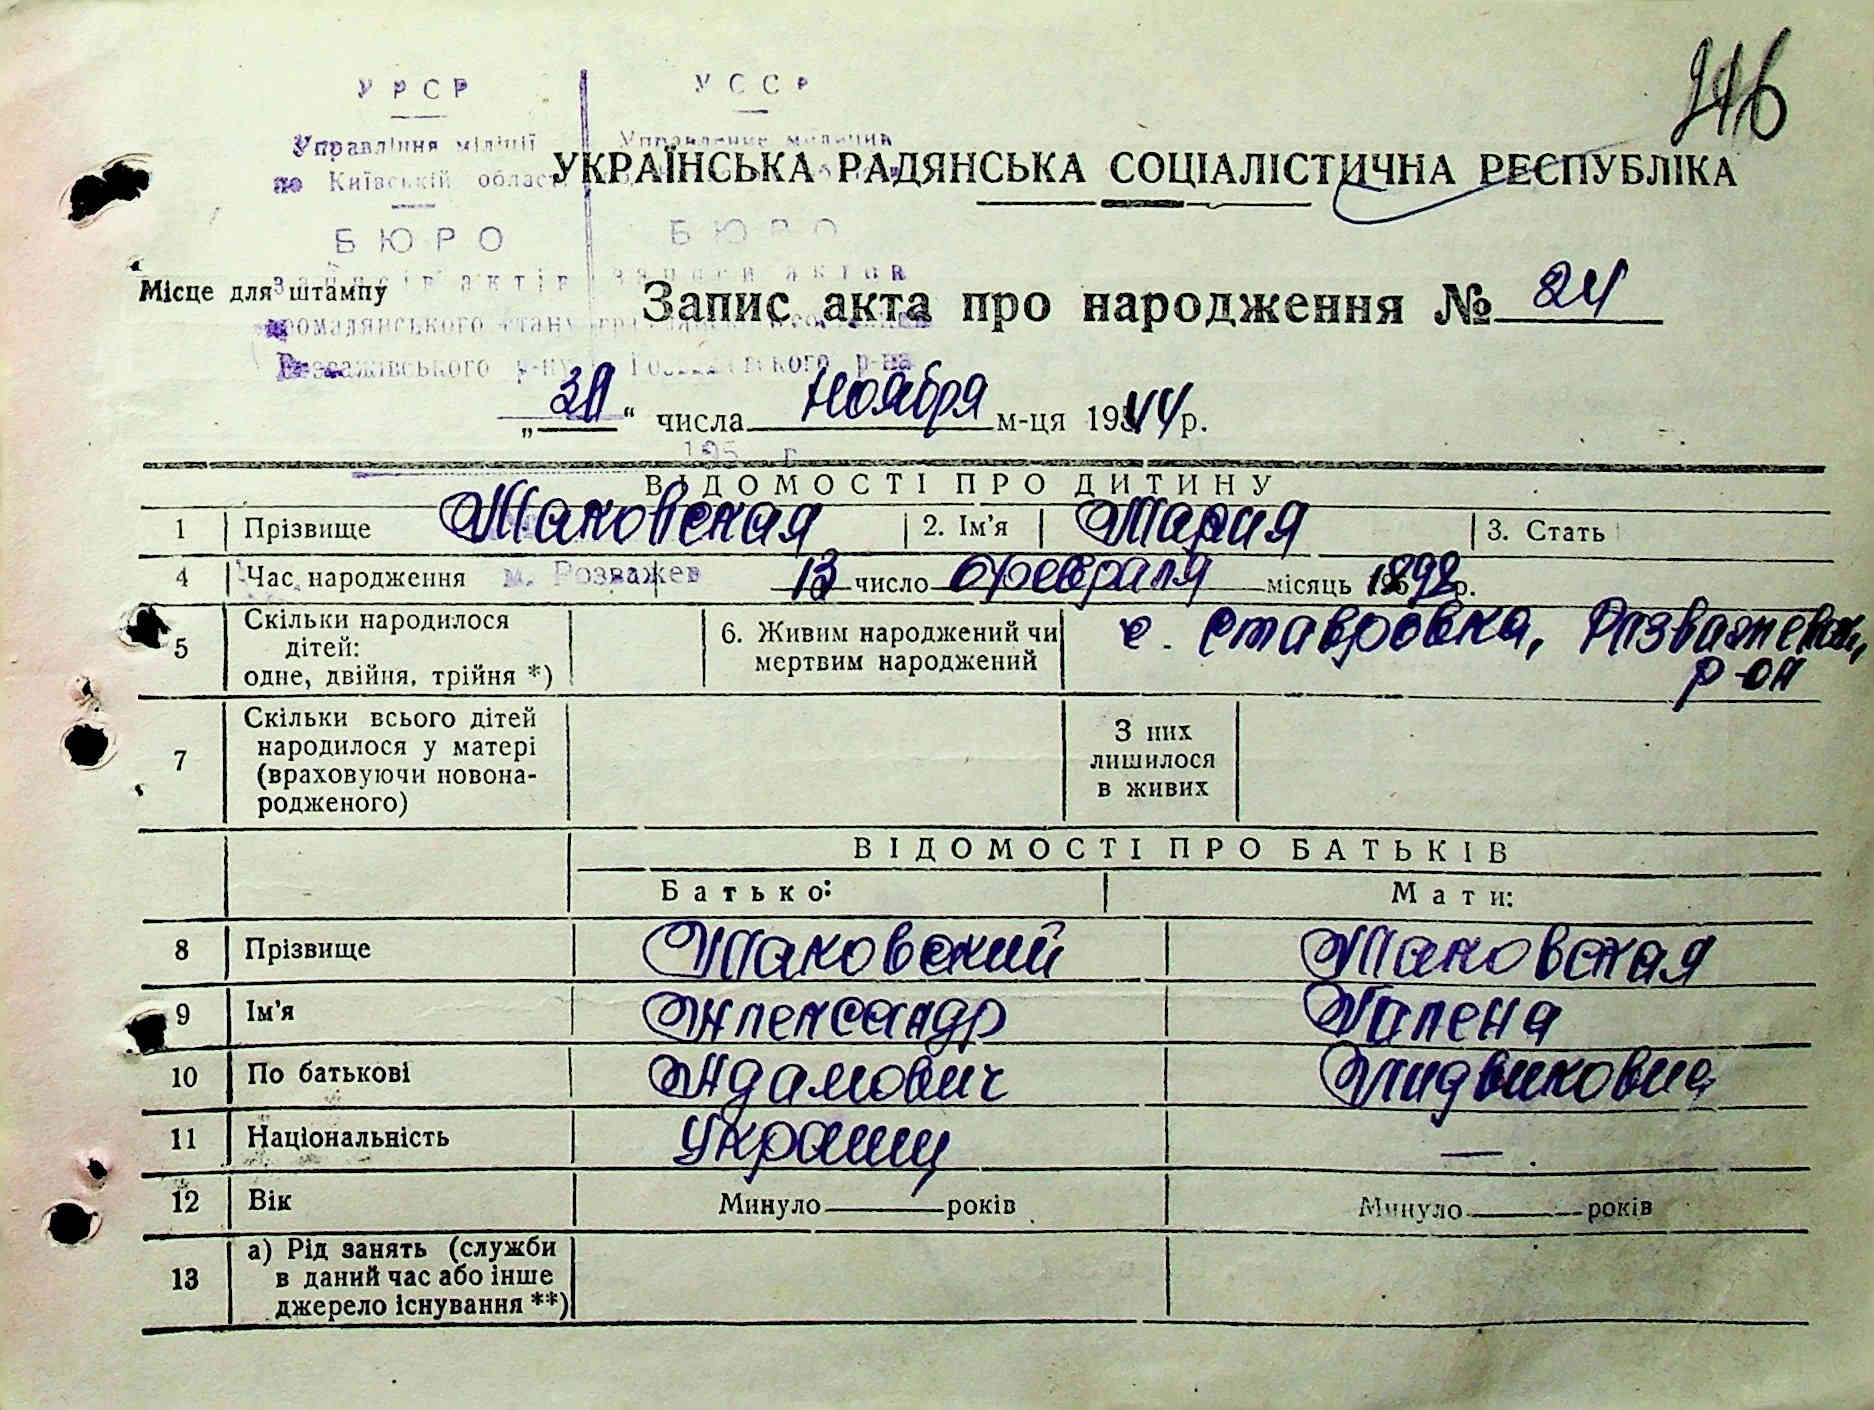 246
УРСР
Управління міліції
по Київській області
БЮРО
записів актів
громадянського стану
Розважівського р-ну
УССР
Управление милиции
БЮРО
записи актов
р-на
УКРАЇНСЬКА РАДЯНСЬКА СОЦІАЛІСТИЧНА РЕСПУБЛІКА
Місце для штампу
Запис акта про народження № 24
„ “ числа Ноября м-ця 1944 р.
195 г.
ВІДОМОСТІ ПРО ДИТИНУ
1 Прізвище Маковская 2. Ім’я Мария 3. Стать
4 Час народження м. Розважев 13 число февраля місяць 1898 р.
5 Скільки народилося
дітей:
одне, двійня, трійня *)
6. Живим народжений чи
мертвим народжений
с. Ставровка, Розважевск,
р-он
7 Скільки всього дітей
народилося у матері
(враховуючи новона-
родженого)
З них
лишилося
в живих
ВІДОМОСТІ ПРО БАТЬКІВ
Батько: Мати:
8 Прізвище Маковский Маковская
9 Ім’я Александр
10 По батькові Адамович
11 Національність Украинц —
12 Вік Минуло років Минуло років
13 а) Рід занять (служби
в даний час або інше
джерело існування **)